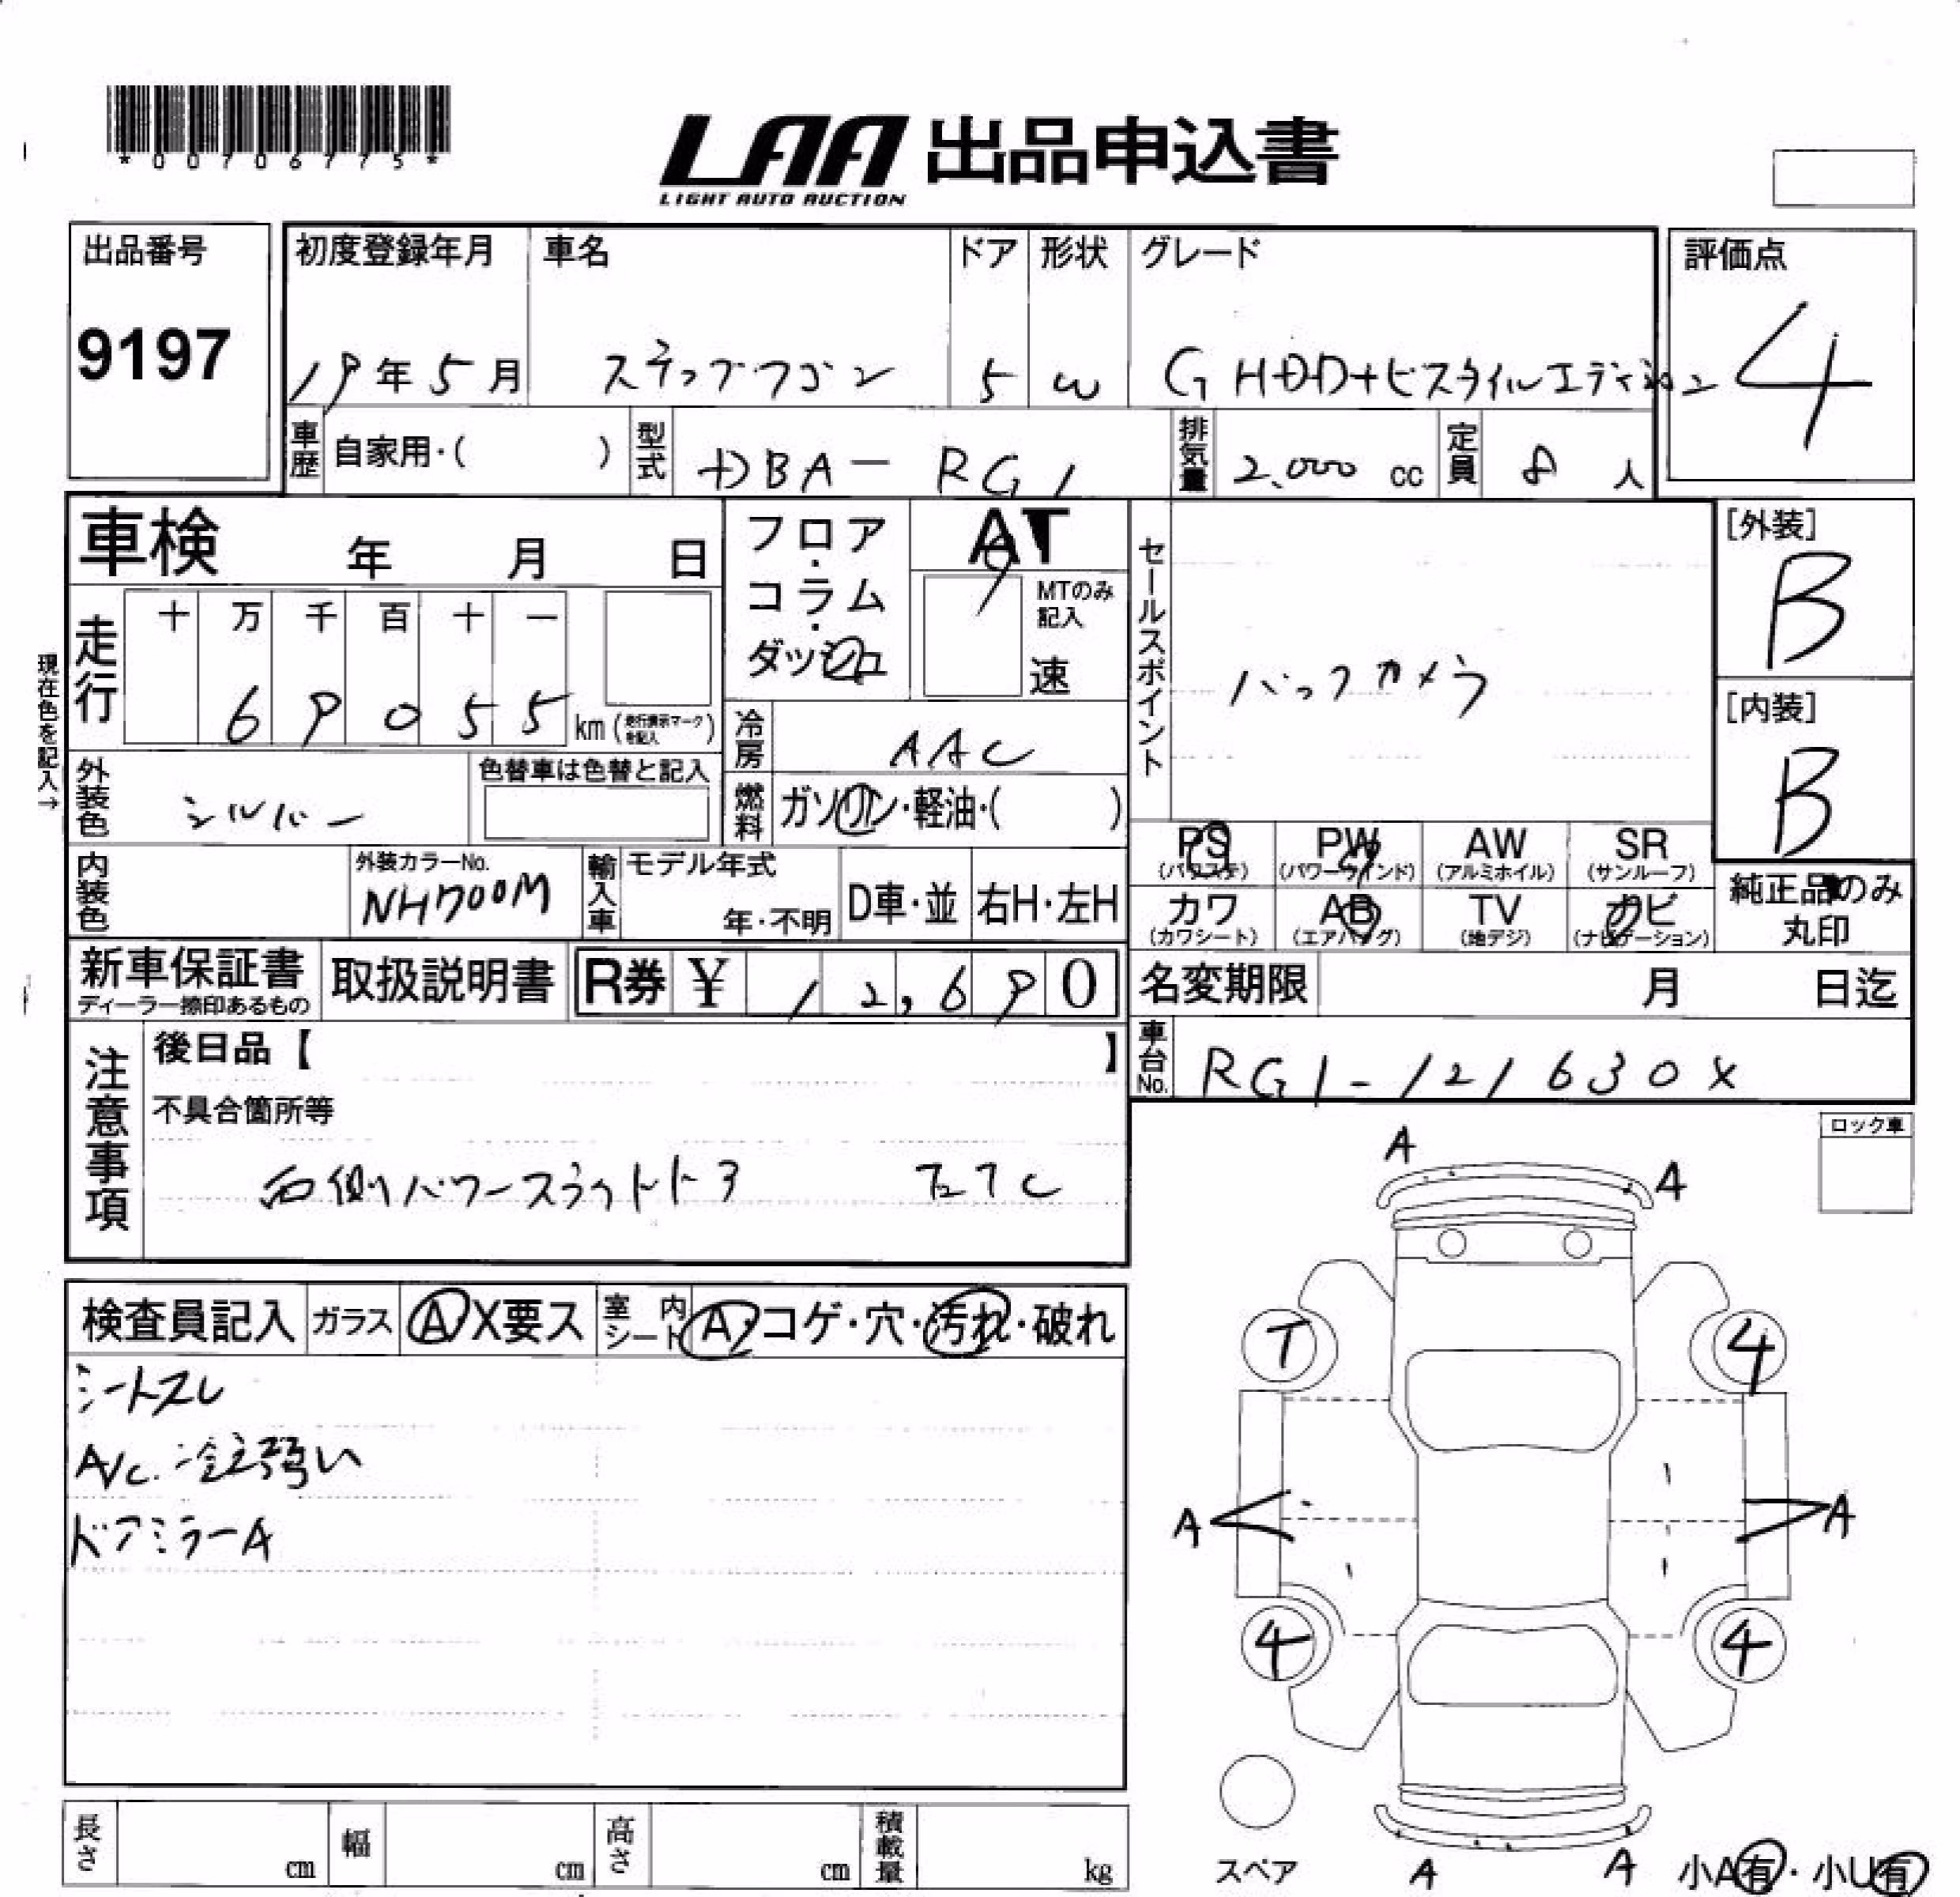 *00706775*
LAA 出品申込書
LIGHT AUTO AUCTION
出品番号
9197
初度登録年月
19年5月
車名
ステップワゴン
ドア
5
形状
W
グレード
G HDDナビスタイルエディション
評価点
4
車歴 自家用・( )
型式 DBA-RG1
排気量 2.000 cc
定員 8 人
車検 年 月 日
フロア・コラム・ダッシュ
AT
MTのみ記入
速
セールスポイント
バックカメラ
[外装]
B
[内装]
B
現在色を記入→
走行
十 万 千 百 十 一
6 9 0 5 5 km (走行表示マークを記入)
冷房 AAC
外装色 シルバー
色替車は色替と記入
燃料 ガソリン・軽油・( )
内装色
外装カラーNo.
NH700M
輸入車 モデル年式
年・不明
D車・並 右H・左H
PS (パワステ)
PW (パワーウインド)
AW (アルミホイル)
SR (サンルーフ)
カワ (カワシート)
AB (エアバッグ)
TV (地デジ)
ナビ (ナビゲーション)
純正品のみ丸印
新車保証書
ディーラー捺印あるもの
取扱説明書
R券 ¥ 12,690
名変期限 月 日迄
車台No. RG1-121630X
注意事項
後日品【 】
不具合箇所等
右側パワースライドドア ETC
ロック車
検査員記入
ガラス A・X要ス
室内シート A・コゲ・穴・汚れ・破れ
シートスレ
A/C.冷え弱い
ドアミラーA
A
A
7 4
A A
4 4
スペア
A A
小A有・小U有
長さ cm
幅 cm
高さ cm
積載量 kg